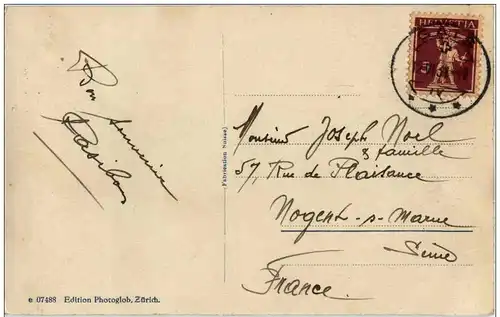 HELVETIA
Bon
souvenir
Fabrication Suisse
Monsieur Joseph Noel
& famille
57, Rue de Plaisance
Nogent-s-Marne
Seine
France
e 07488 Edition Photoglob, Zürich.